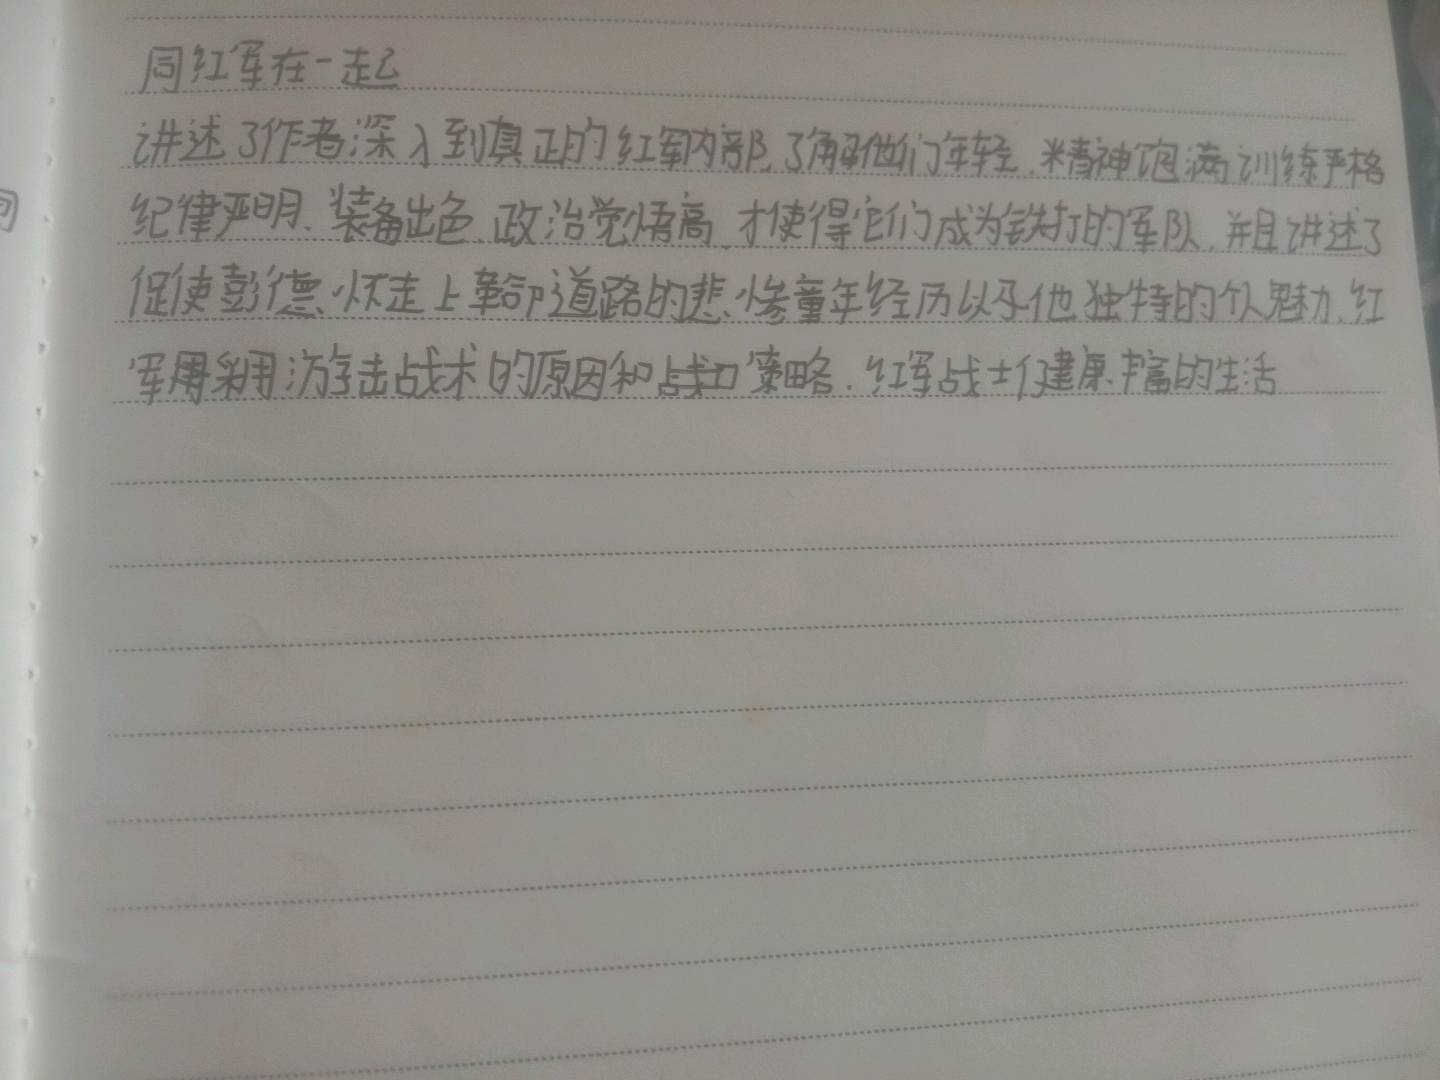 同红军在一起
讲述了作者深入到真正的红军内部,了解他们年轻、精神饱满训练严格
纪律严明、装备出色、政治觉悟高,才使得它们成为铁打的军队,并且讲述了
促使彭德怀走上革命道路的悲惨童年经历以及他独特的个人魅力、红
军采用游击战术的原因和策略.红军战士们健康丰富的生活